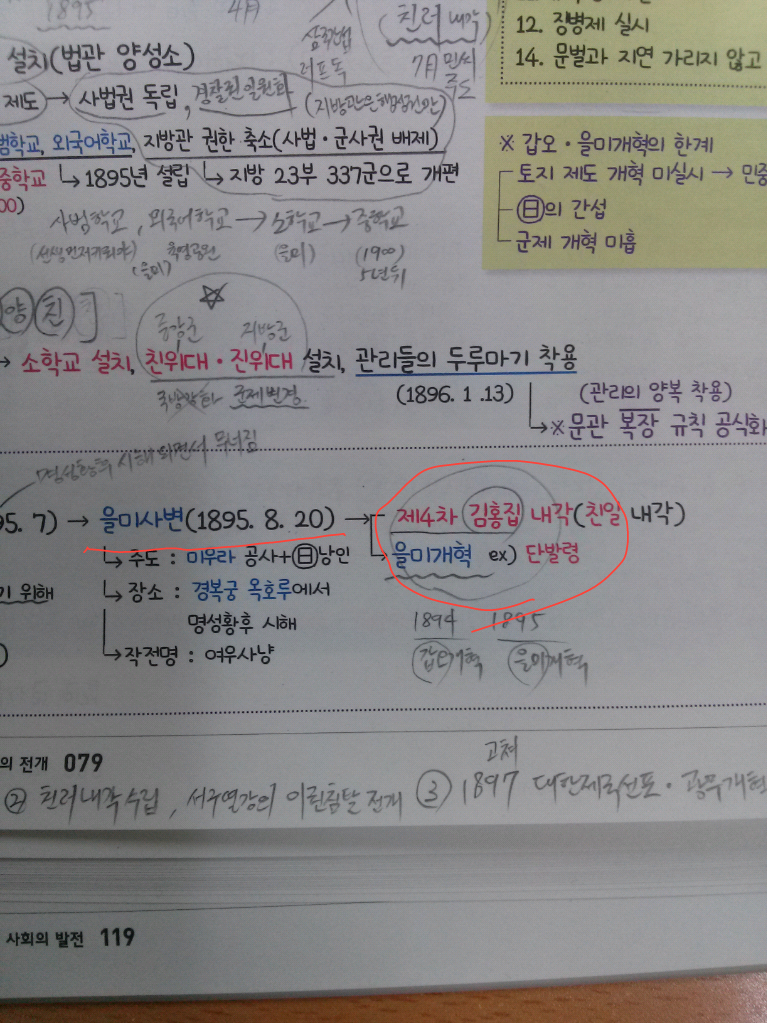 1895 4月
(친러 내각)
12. 징병제 실시
14. 문벌과 지연 가리지 않고
설치(법관 양성소)
삼국간섭
러프독
7月 민씨
주도
제도 → 사법권 독립, 경찰권 일원화
(지방관은 행정권만)
범학교, 외국어학교, 지방관 권한 축소(사법·군사권 배제)
중학교 ↳1895년 설립 ↳지방 23부 337군으로 개편
00)
※ 갑오·을미개혁의 한계
토지 제도 개혁 미실시 → 민중
日의 간섭
군제 개혁 미흡
사범학교, 외국어학교 → 소학교 → 중학교
(을미) 육영공원 (을미) (1900)
5년뒤
양 친]
중앙군 지방군
→ 소학교 설치, 친위대·진위대 설치, 관리들의 두루마기 착용
군제변경
(1896. 1 .13) (관리의 양복 착용)
↳※문관 복장 규칙 공식화
명성황후 시해 되면서 무너짐
95. 7) → 을미사변(1895. 8. 20) → 제4차 김홍집 내각(친일 내각)
↳주도 : 미우라 공사+日낭인
을미개혁 ex) 단발령
기 위해
↳장소 : 경복궁 옥호루에서
명성황후 시해
↳작전명 : 여우사냥
1894 1895
갑오개혁 을미개혁
의 전개 079
고쳐
② 친러내각수립, 서구열강의 이권침탈 전개 ③ 1897 대한제국선포·광무개혁
사회의 발전 119